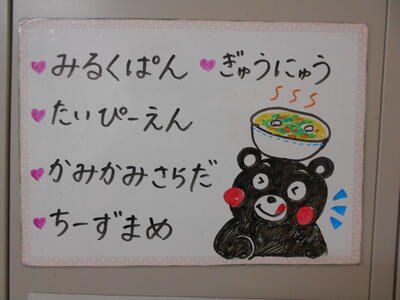 みるくぱん ぎゅうにゅう
たいぴーえん
かみかみさらだ
ちーずまめ